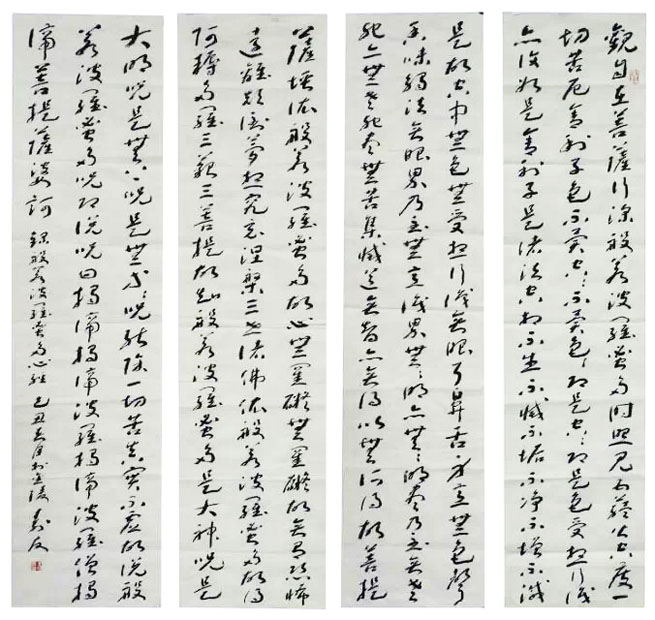 觀自在菩薩行深般若波羅蜜多時照見五蘊皆空度一
切苦厄舍利子色不異空々不異色々即是空々即是色受想行識
亦復如是舍利子是諸法空相不生不滅不垢不淨不增不減
是故空中無色無受想行識無眼耳鼻舌身意無色聲
香味觸法無眼界乃至無意識界無無明亦無無明盡乃至無老
死亦無老死盡無苦集滅道無智亦無得以無所得故菩提
薩埵依般若波羅蜜多故心無罣礙無罣礙故無有恐怖
遠離顛倒夢想究竟涅槃三世諸佛依般若波羅蜜多故得
阿耨多羅三藐三菩提故知般若波羅蜜多是大神咒是
大明咒是無上咒是無等々咒能除一切苦真實不虛故說般
若波羅蜜多咒即說咒曰揭諦揭諦波羅揭諦波羅僧揭
諦菩提薩婆訶 錄般若波羅蜜多心經 己丑 月於金陵 友